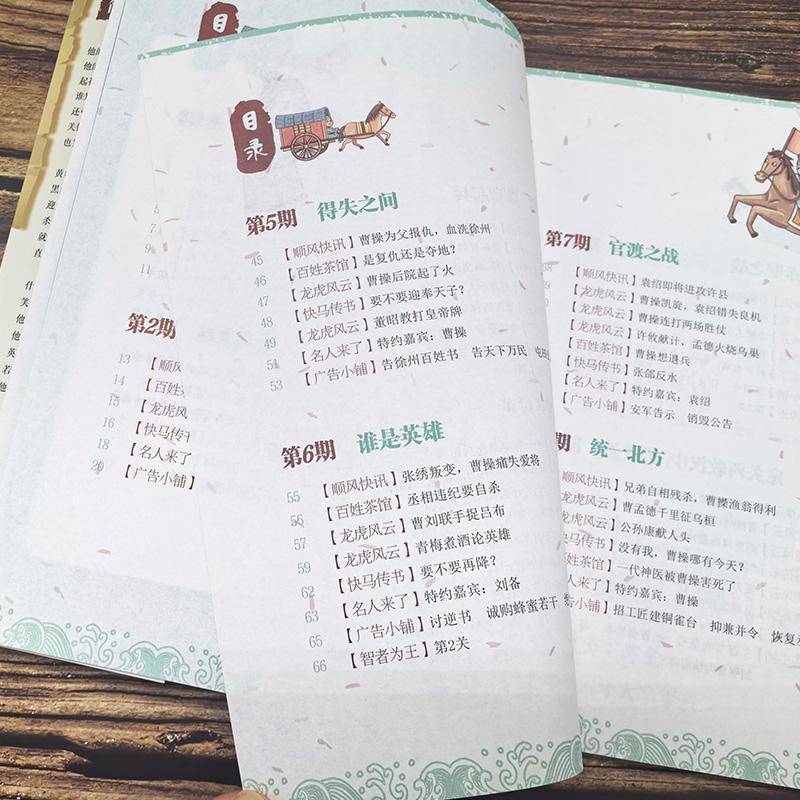 目录
目录
第5期 得失之间
45 【顺风快讯】曹操为父报仇，血洗徐州
46 【百姓茶馆】是复仇还是夺地？
47 【龙虎风云】曹操后院起了火
48 【快马传书】要不要迎奉天子？
49 【龙虎风云】董昭教打皇帝牌
51 【名人来了】特约嘉宾：曹操
53 【广告小铺】告徐州百姓书 告天下万民
第6期 谁是英雄
55 【顺风快讯】张绣叛变，曹操痛失爱将
56 【百姓茶馆】丞相违纪要自杀
57 【龙虎风云】曹刘联手捉吕布
59 【龙虎风云】青梅煮酒论英雄
62 【快马传书】要不要再降？
63 【名人来了】特约嘉宾：刘备
65 【广告小铺】讨逆书 诚购蜂蜜若干
66 【智者为王】第2关
7
9
11
第2期
13 【顺风
14 【百姓
15 【龙虎风
16 【快马传
18 【名人来了
20 【广告小铺】
第7期 官渡之战
【顺风快讯】袁绍即将进攻许县
【龙虎风云】曹操凯旋，袁绍错失良机
【龙虎风云】曹操连打两场胜仗
【龙虎风云】许攸献计，孟德火烧乌巢
【百姓茶馆】曹操想退兵
【快马传书】张郃反水
【名人来了】特约嘉宾：袁绍
【广告小铺】安军告示 销毁公告
期 统一北方
【顺风快讯】兄弟自相残杀，曹操渔翁得利
龙虎风云】曹孟德千里征乌桓
龙虎风云】公孙康献人头
快马传书】没有我，曹操哪有今天？
百姓茶馆】一代神医被曹操害死了
名人来了】特约嘉宾：曹操
广告小铺】招工匠建铜雀台 抑兼并令 恢复